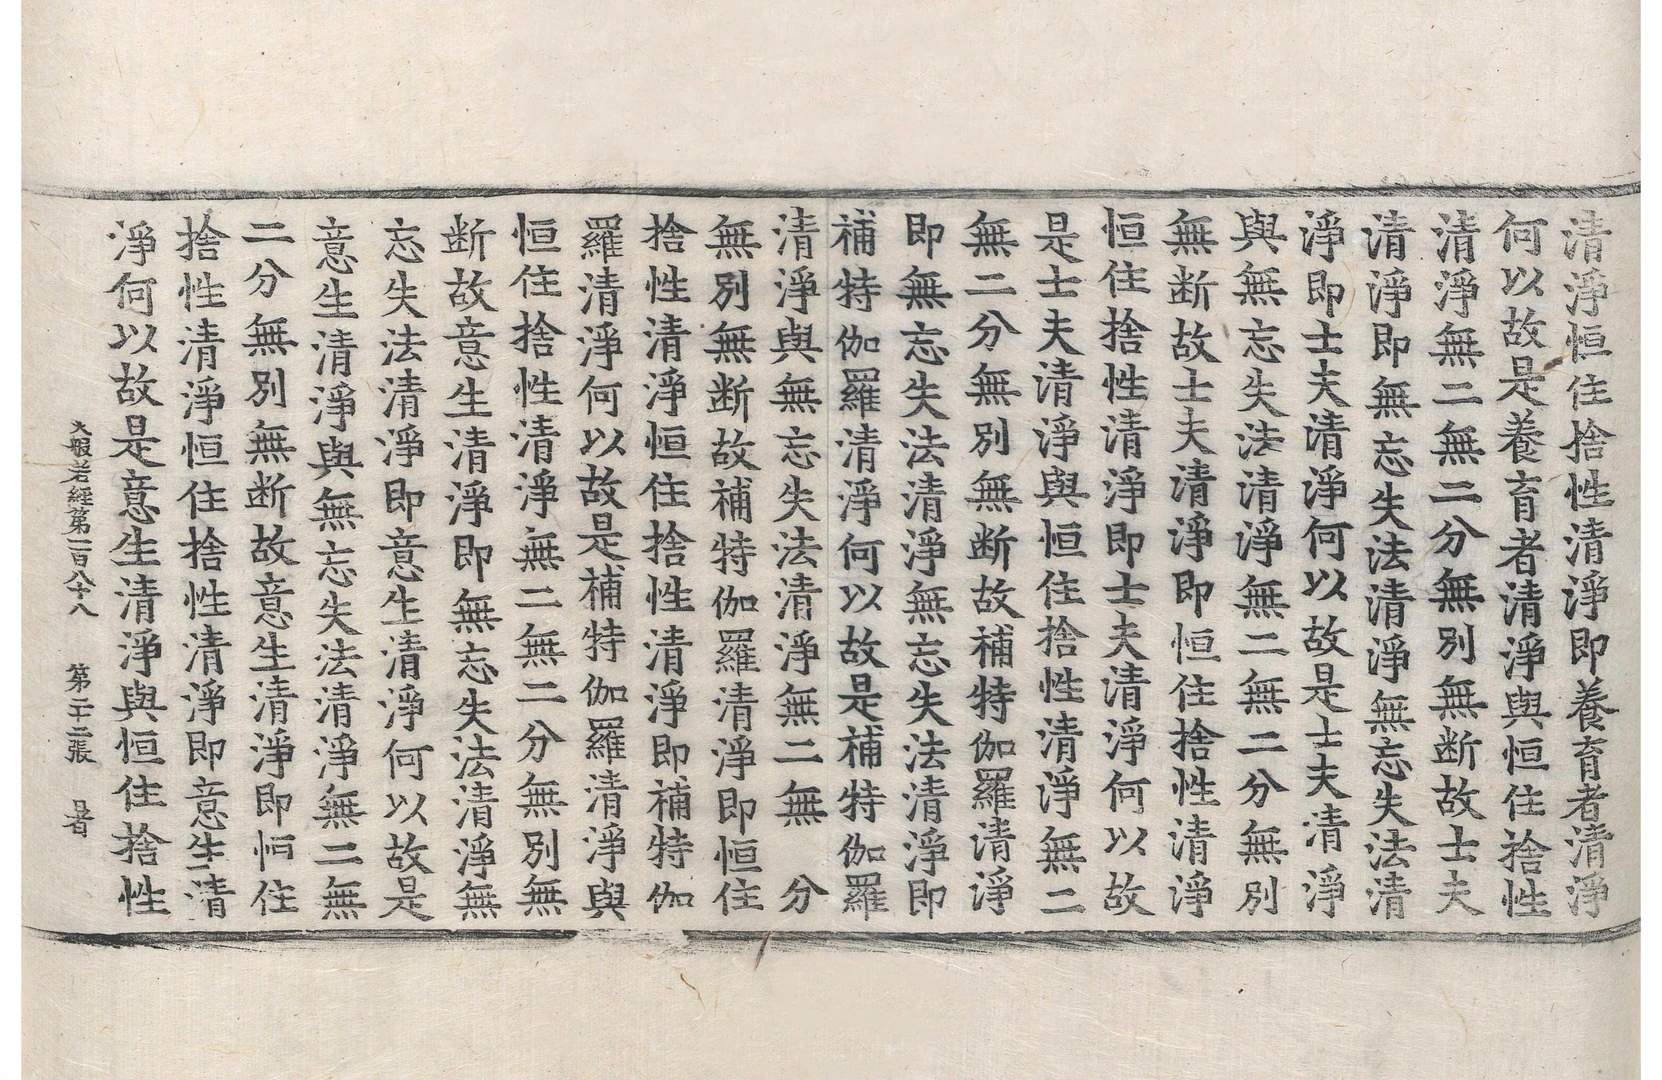 清淨恒住捨性清淨即養育者清淨
何以故是養育者清淨與恒住捨性
清淨無二無二分無別無断故士夫
清淨即無忘失法清淨無忘失法清
淨即士夫清淨何以故是士夫清淨
與無忘失法清淨無二無二分無別
無断故士夫清淨即恒住捨性清淨
恒住捨性清淨即士夫清淨何以故
是士夫清淨與恒住捨性清淨無二
無二分無別無断故補特伽羅清淨
即無忘失法清淨無忘失法清淨即
補特伽羅清淨何以故是補特伽羅
清淨與無忘失法清淨無二無 分
無別無断故補特伽羅清淨即恒住
捨性清淨恒住捨性清淨即補特伽
羅清淨何以故是補特伽羅清淨與
恒住捨性清淨無二無二分無別無
断故意生清淨即無忘失法清淨無
忘失法清淨即意生清淨何以故是
意生清淨與無忘失法清淨無二無
二分無別無断故意生清淨即恒住
捨性清淨恒住捨性清淨即意生清
淨何以故是意生清淨與恒住捨性
大般若經第一百八十八 第二十二張